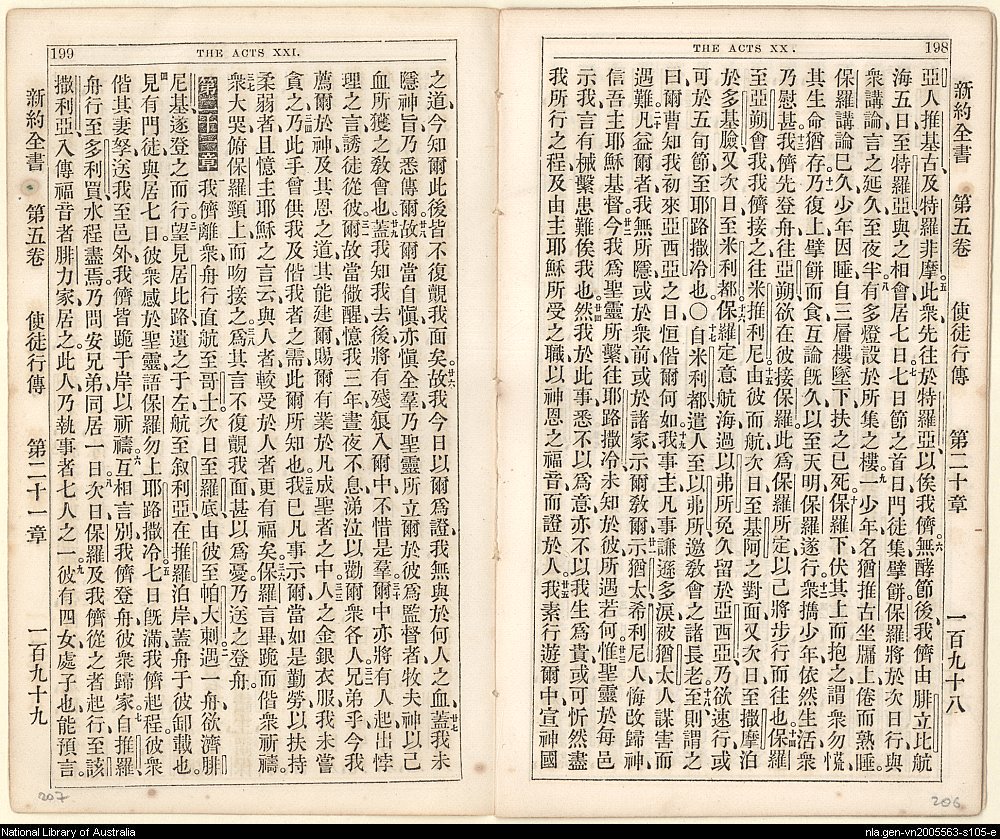 THE ACTS XX.
198
新約全書 第五卷 使徒行傳 第二十章 一百九十八
亞人推基古、及特羅非摩、此衆先往於特羅亞、以俟我儕。無酵節後、我儕由腓立比航
海、五日至特羅亞、與之相會、居七日。七日節之首日、門徒集、擘餅、保羅將於次日行、與
衆講論、言之延久至夜半。有多燈設於所集之樓。一少年名猶推古、坐牖上倦而熟睡、
保羅講論已久、少年因睡、自三層樓墜下、扶之已死。保羅下伏其上而抱之、謂衆勿慌、
其生命猶存。乃復上擘餅而食、互論旣久、以至天明、保羅遂行。衆攜少年、依然生活、衆
乃慰甚。我儕先登舟、往亞朔、欲在彼接保羅、此爲保羅所定、以己將步行而往也。保羅
至亞朔會我、我儕接之、往米推利尼。由彼而航、次日至基阿之對面、又次日至撒摩、泊
於多基臉、又次日至米利都。保羅定意航海過以弗所、免久留於亞西亞、乃欲速行、或
可於五旬節至耶路撒冷也。〇自米利都遣人至以弗所、邀敎會之諸長老、至則謂之
曰、爾曹知我初來亞西亞之日、恒偕爾何如。我事主、凡事謙遜多淚、被猶太人謀害而
遇難。凡益爾者、我無所隱、或於衆前、或於諸家、示爾敎爾。示猶太希利尼人、悔改歸神、
信吾主耶穌基督。今我爲聖靈所繫、往耶路撒冷、未知於彼所遇若何。惟聖靈於每邑
示我、言有械繫患難俟我也。然我於此事、悉不以爲意、亦不以我生爲貴、或可忻然盡
我所行之程、及由主耶穌所受之職、以神恩之福音而證於人。我素行遊爾中、宣神國
199
THE ACTS XXI.
之道、今知爾此後皆不復覿我面矣。故我今日以爾爲證、我無與於何人之血。蓋我未
隱神旨、乃悉傳爾。故爾當自愼、亦愼全羣、乃聖靈所立爾於彼爲監督者、牧夫神以己
血所獲之敎會也。蓋我知我去後、將有殘狼入爾中、不惜是羣。爾中亦將有人起、出悖
理之言、誘徒從彼。爾故當儆醒、憶我三年晝夜不息、涕泣以勸爾衆各人。兄弟乎、今我
薦爾於神、及其恩之道、其能建爾、賜爾有業於凡成聖者之中。人之金銀衣服、我未嘗
貪之。乃此手曾供我、及偕我者之需、此爾所知也。我已凡事示爾、當如是勤勞、以扶持
柔弱者、且憶主耶穌之言云、與人者較受於人者更有福矣。保羅言畢、跪而偕衆祈禱、
衆大哭、俯保羅頸上而吻接之、爲其言不復覿我面、甚以爲憂、乃送之登舟。
第二十一章 我儕離衆舟行、直航至哥士、次日至羅底、由彼至帕大剌。遇一舟欲濟腓
尼基、遂登之而行。望見居比路、遺之于左、航至叙利亞、在推羅泊岸、蓋舟于彼卸載也。
見有門徒、與居七日、彼衆感於聖靈、語保羅勿上耶路撒冷。七日旣滿、我儕起程、彼衆
偕其妻孥、送我至邑外、我儕皆跪于岸以祈禱。互相言別、我儕登舟、彼衆歸家。自推羅
舟行至多利買、水程盡焉、乃問安兄弟、同居一日。次日保羅及我儕從之者起行、至該
撒利亞、入傳福音者腓力家居之、此人乃執事者七人之一。彼有四女、處子也、能預言。
新約全書 第五卷 使徒行傳 第二十一章 一百九十九
207
206
National Library of Australia
nla.gen-vn2005563-s105-e